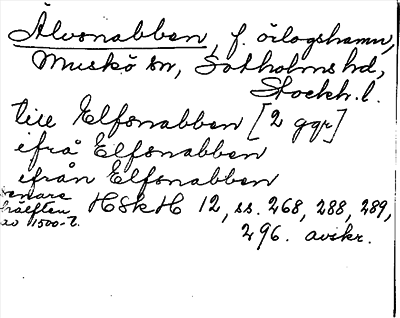 Älvsnabben, f. örlogshamn,
Muskö sn, Sotholms hd,
Stockh. l.
till Elfsnabben [2 ggr]
ifrå Elfsnabben
ifrån Elfsnabben
senare
hälften
av 1500-t.
HSkH 12, ss. 268, 288, 289,
296. avskr.